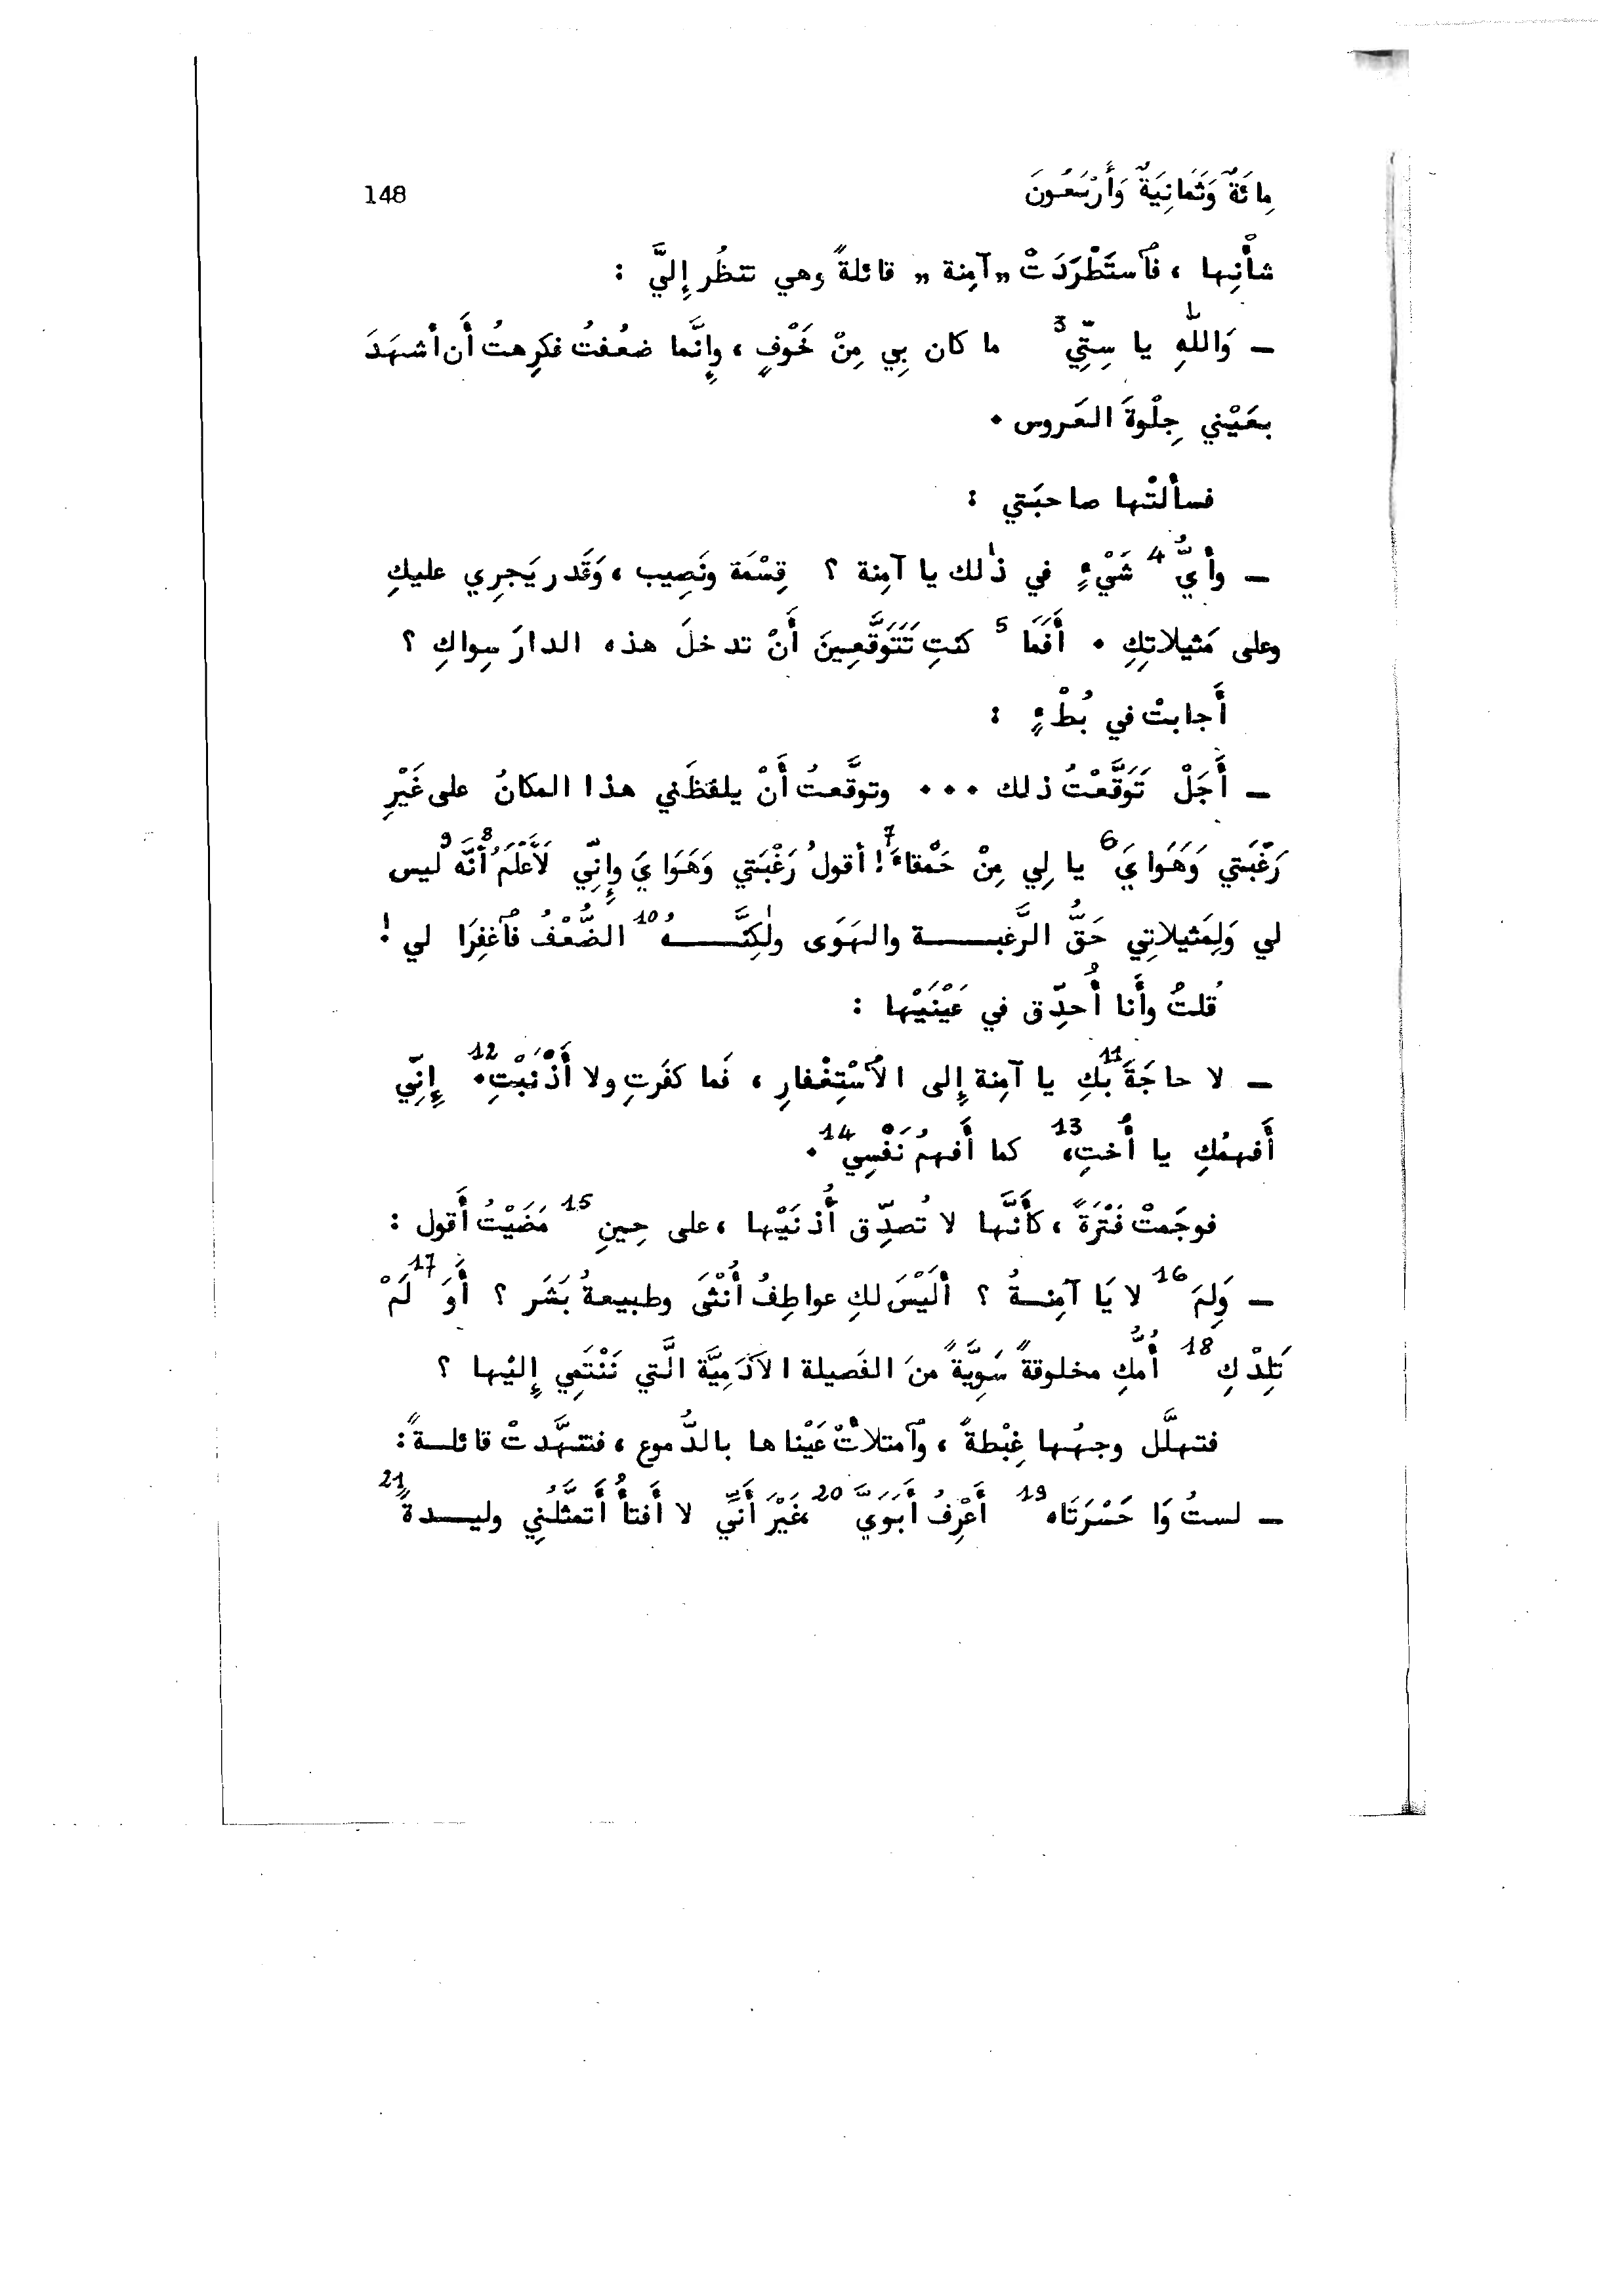 مِائَةٌ وَثَمَانِيَةٌ وَأَرْبَعُونَ 148
شأْنِها ، فَٱستَطْرَدَتْ „آمِنة „ قائلةً وهي تنظُر إِليَّ :
ـ وَاللّٰهِ يا سِتِّي3 ما كان بِي مِنْ خَوْفٍ ، وإِنَّما ضعُفتُ فكرِهتُ أَن أشهَدَ
بعَيْني جِلْوةَ العَروس ٠
فسألتْها صاحبَتي :
ـ وأيُّ4 شَيْءٍ في ذٰلك يا آمِنة ؟ قِسْمَة ونَصِيب ، وَقَدر يَجرِي عليكِ
وعلى مَثيلاتِكِ ٠ أَفَمَا5 كنتِ تَتَوَقَّعِينَ أَنْ تدخلَ هذه الدارَ سِواكِ ؟
أَجابتْ في بُطْءٍ :
ـ أَجَلْ تَوَقَّعْتُ ذلك ٠٠٠ وتوقَّعتُ أَنْ يلفظَني هذا المكانُ على غَيْرِ
رَغْبَتي وَهَوايَ6 يا لِي مِنْ حَمْقاءَ7! أقولُ رَغْبَتي وَهَوَايَ وإِنِّي لَأَعْلَمُ8 أَنَّه9 ليس
لي وَلِمَثيلاتِي حَقُّ الرَّغبـــة والهَوَى ولٰكِنَّـــهُ10 الضُّعْفُ فَٱغفِرَا لي !
قلتُ وأَنا أُحدِّق في عَيْنَيْها :
ـ لا حاجَةَ11 بكِ يا آمِنة إِلى الٱسْتِغْفارِ ، فَما كفَرتِ ولا أَذْنَبْتِ12٠ إِنِّي
أَفهمُكِ يا أُختِ13، كما أَفهمُ نَفْسِي14 ٠
فوجَمتْ فَتْرَةً ، كأَنَّها لا تُصدِّق أُذنَيْها ، على حِينِ15 مَضَيْتُ أَقول :
ـ وَلِمَ16 لا يَا آمِنــةُ ؟ ألَيْسَ لكِ عواطِفُ أُنْثَى وطبيعةُ بَشَر ؟ أَوَ17 لَمْ
تَلِدْكِ18 أُمُّكِ مخلوقةً سَوِيَّةً منَ الفَصيلة الآدَمِيَّة الَّتي نَنْتَمِي إِليْها ؟
فتهلَّل وجهُها غِبْطةً ، وٱمتلأتْ عَيْناها بالدُّموع ، فتنهَّدتْ قائلــةً :
ـ لستُ وَا حَسْرَتَاه19 أَعْرِفُ أَبَوَيَّ20، غَيْرَ أَنِّي لا أَفتأُ أَتمثَّلُنِي وليــدةً21